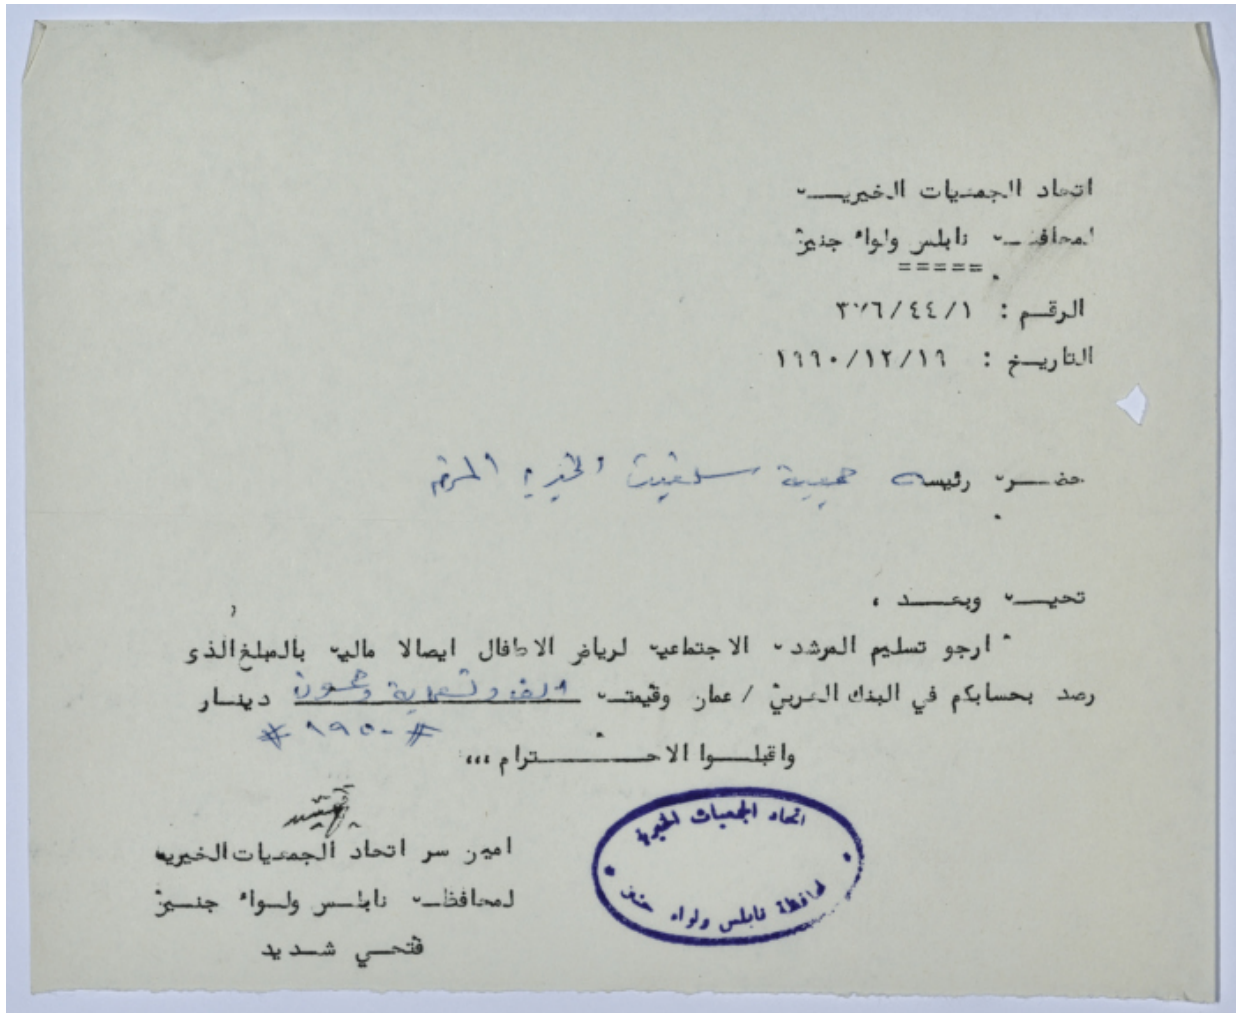 اتحاد الجمعيات الخيريــه
لمحافظــه نابلس ولواء جنين
=====
الرقــم : ٣٧٦/٤٤/١
التاريــخ : ١٩٩٠/١٢/١٩
حضــره رئيسه جمعية سلفيت الخيرية المحترمه
تحيــه وبعــــد ،
ارجو تسليم المرشده الاجتماعيه لرياض الاطفال ايصالا ماليه بالمبلغ الذي
رصد بحسابكم في البنك العربي / عمان وقيمتــه الف وتسعماية وخمسون دينــار
# ١٩٥٠ #
واقبلــــوا الاحــــــــترام ،،،
امين سر اتحاد الجمعيات الخيريه
لمحافظــه نابلــس ولــواء جنــين
فتحــي شــديد
اتحاد الجمعيات الخيرية
لمحافظة نابلس ولواء جنين